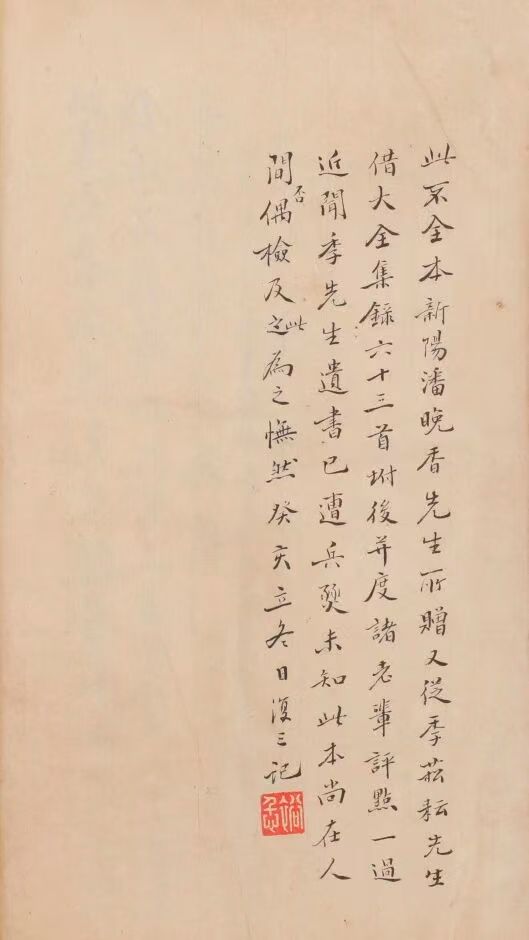 此不全本新陽潘晚香先生所贈又從季菘耘先生
借大全集錄六十三首坿後并度諸老輩評點一過
近聞季先生遺書已遭兵燹未知此本尚在人
間否偶檢及此為之憮然癸亥立冬日復三記